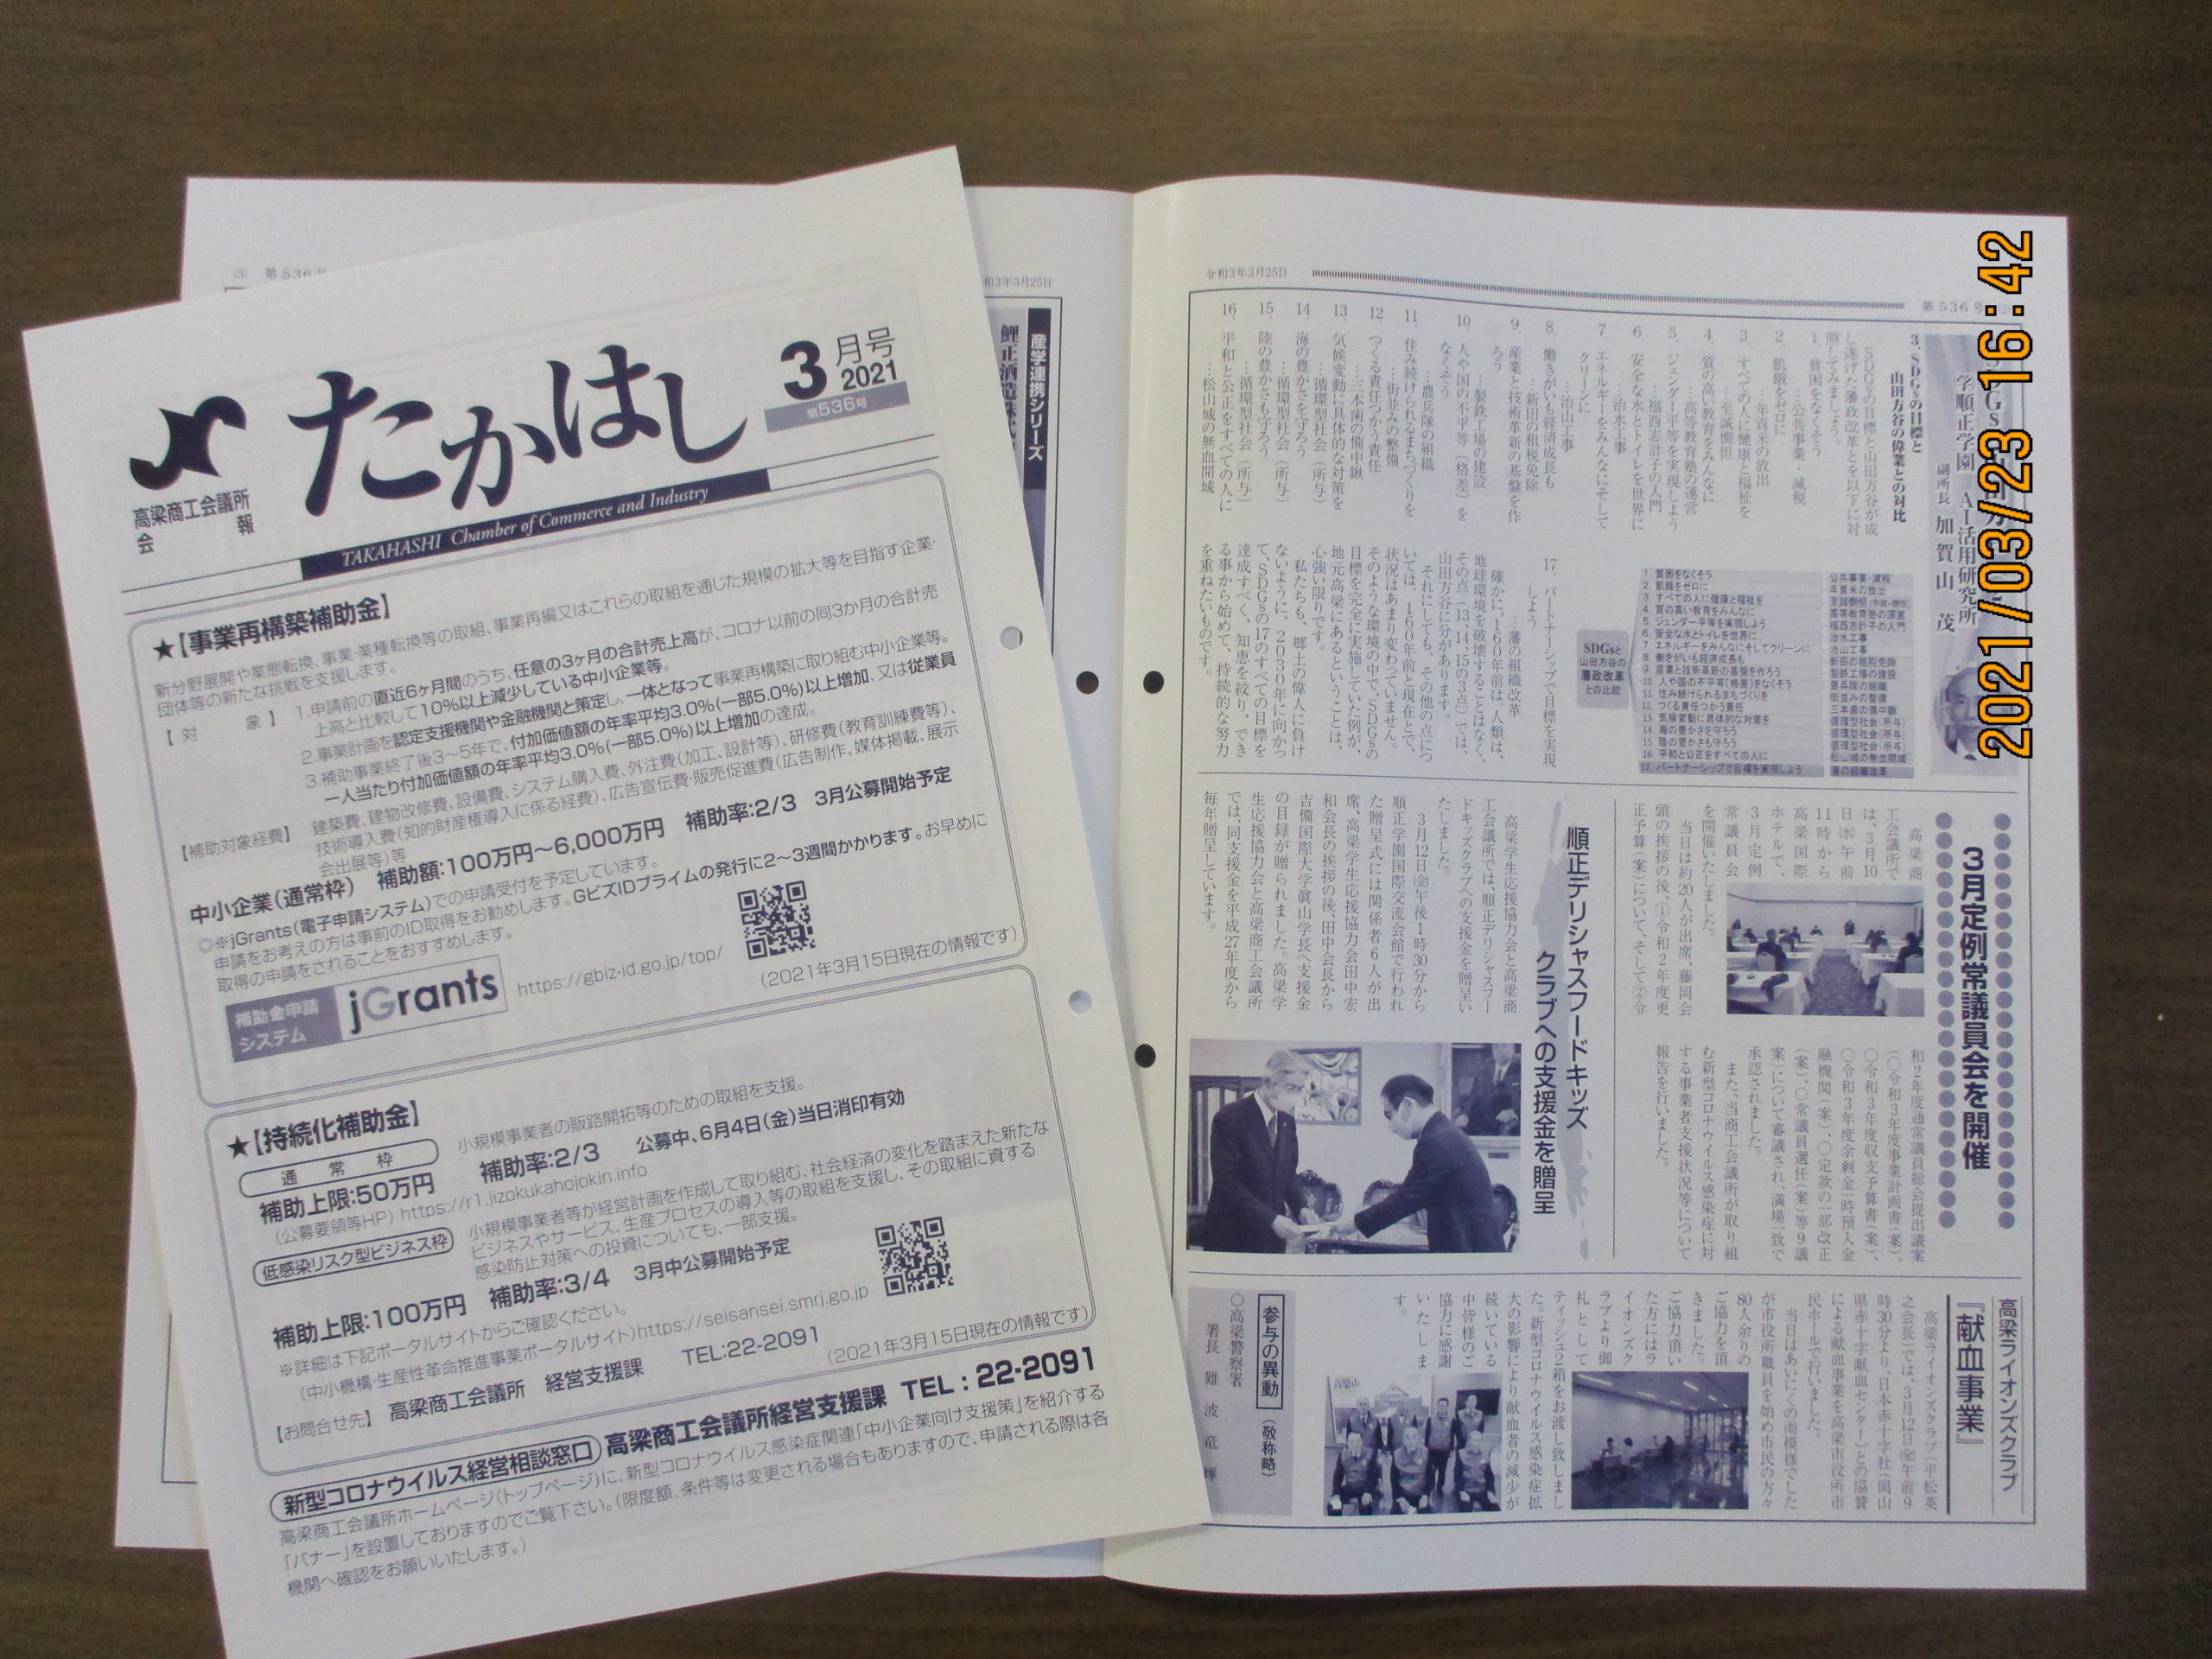 たかはし
3月号
2021
第536号
高梁商工会議所
会報
TAKAHASHI Chamber of Commerce and Industry
★【事業再構築補助金】
新分野展開や業態転換、事業・業種転換等の取組、事業再編又はこれらの取組を通じた規模の拡大等を目指す企業・
団体等の新たな挑戦を支援します。
【対象】 1.申請前の直近6ヶ月間のうち、任意の3ヶ月の合計売上高が、コロナ以前の同3か月の合計売
上高と比較して10%以上減少している中小企業等。
2.事業計画を認定支援機関や金融機関と策定し、一体となって事業再構築に取り組む中小企業等。
3.補助事業終了後3~5年で、付加価値額の年率平均3.0%(一部5.0%)以上増加、又は従業員
一人当たり付加価値額の年率平均3.0%(一部5.0%)以上増加の達成。
【補助対象経費】 建築費、建物改修費、設備費、システム購入費、外注費(加工、設計等)、研修費(教育訓練費等)、
技術導入費(知的財産権導入に係る経費)、広告宣伝費・販売促進費(広告制作、媒体掲載、展示
会出展等)等
中小企業(通常枠) 補助額:100万円~6,000万円 補助率:2/3 3月公募開始予定
◎※jGrants(電子申請システム)での申請受付を予定しています。
申請をお考えの方は事前のID取得をお勧めします。GビズIDプライムの発行に2~3週間かかります。お早めに
取得の申請をされることをおすすめします。
補助金申請
システム
jGrants
https://gbiz-id.go.jp/top/
(2021年3月15日現在の情報です)
★【持続化補助金】
通常枠
小規模事業者の販路開拓等のための取組を支援。
補助上限:50万円 補助率:2/3 公募中、6月4日(金)当日消印有効
(公募要領等HP) https://r1.jizokukahojokin.info
低感染リスク型ビジネス枠
小規模事業者等が経営計画を作成して取り組む、社会経済の変化を踏まえた新たな
ビジネスやサービス、生産プロセスの導入等の取組を支援し、その取組に資する
感染防止対策への投資についても、一部支援。
補助上限:100万円 補助率:3/4 3月中公募開始予定
※詳細は下記ポータルサイトからご確認ください。
(中小機構・生産性革命推進事業ポータルサイト)https://seisansei.smrj.go.jp
【お問合せ先】 高梁商工会議所 経営支援課 TEL:22-2091
(2021年3月15日現在の情報です)
新型コロナウイルス経営相談窓口 高梁商工会議所経営支援課 TEL:22-2091
高梁商工会議所ホームページ(トップページ)に、新型コロナウイルス感染症関連「中小企業向け支援策」を紹介する
「バナー」を設置しておりますのでご覧下さい。(限度額、条件等は変更される場合もありますので、申請される際は各
機関へ確認をお願いいたします。)
第536号
和3年3月25日
産学連携シリーズ
令和3年3月25日
第536号
学順正学園 AI活用研究所
副所長 加賀山 茂
3. SDGsの目標と
山田方谷の偉業との対比
SDGsの目標と山田方谷が成
し遂げた藩政改革とを以下に対
照してみましょう。
1. 貧困をなくそう
…公共事業・減税
2. 飢餓をゼロに
…年貢米の放出
3. すべての人に健康と福祉を
…至誠惻怛
4. 質の高い教育をみんなに
…高等教育塾の運営
5. ジェンダー平等を実現しよう
…福西志計子の入門
6. 安全な水とトイレを世界に
…治水工事
7. エネルギーをみんなにそして
クリーンに
…治山工事
8. 働きがいも経済成長も
…新田の租税免除
9. 産業と技術革新の基盤を作
ろう
…製鉄工場の建設
10. 人や国の不平等(格差)を
なくそう
…農兵隊の組織
11. 住み続けられるまちづくりを
…街並みの整備
12. つくる責任つかう責任
…三本歯の備中鍬
13. 気候変動に具体的な対策を
…循環型社会(所与)
14. 海の豊かさを守ろう
…循環型社会(所与)
15. 陸の豊かさも守ろう
…循環型社会(所与)
16. 平和と公正をすべての人に
…松山城の無血開城
17. パートナーシップで目標を実現
しよう
…藩の組織改革
確かに、160年前は、人類は、
地球環境を破壊することはなく、
その点(13、14、15の3点)では、
山田方谷に分があります。
それにしても、その他の点につ
いては、160年前と現在とで、
状況はあまり変わっていません。
そのような環境の中で、SDGsの
目標を完全に実施していた例が、
地元高梁にあるということは、
心強い限りです。
私たちも、郷土の偉人に負け
ないように、2030年に向かっ
て、SDGsの17のすべての目標を
達成すべく、知恵を絞り、でき
る事から始めて、持続的な努力
を重ねたいものです。
SDGsと
山田方谷の
藩政改革
との比較
1 貧困をなくそう 公共事業・減税
2. 飢餓をゼロに 年貢米の放出
3. すべての人に健康と福祉を
4 質の高い教育をみんなに 高等教育塾の運営
5 ジェンダー平等を実現しよう 福西志計子の入門
6. 安全な水とトイレを世界に 治水工事
7 エネルギーをみんなにそしてクリーンに 治山工事
8. 働きがいも経済成長も 新田の租税免除
9 産業と技術革新の基盤を作ろう 製鉄工場の建設
10. 人や国の不平等[格差]をなくそう 農兵隊の組織
11. 住み続けられるまちづくりを 街並みの整備
12. つくる責任つかう責任 三本歯の備中鍬
13 気候変動に具体的な対策を 循環型社会(所与)
14. 海の豊かさを守ろう 循環型社会(所与)
15. 陸の豊かさも守ろう 循環型社会(所与)
16. 平和と公正をすべての人に 松山城の無血開城
17. パートナーシップで目標を実現しよう 藩の組織改革
3月定例常議員会を開催
高梁商
工会議所で
は、3月10
日㈬午前
11時から
高梁国際
ホテルで、
3月定例
常議員会
を開催いたしました。
当日は約20人が出席、藤岡会
頭の挨拶の後、①令和2年度更
正予算(案)について、そして②令
和2年度通常議員総会提出議案
(○令和3年度事業計画書(案)、
○令和3年度収支予算書(案)、
○令和3年度余剰金一時預入金
融機関(案)、○定款の一部改正
(案)、○常議員選任(案)等9議
案)について審議され、満場一致で
承認されました。
また、当商工会議所が取り組
む新型コロナウイルス感染症に対
する事業者支援状況等について
報告を行いました。
順正デリシャスフードキッズ
クラブへの支援金を贈呈
高梁学生応援協力会と高梁商
工会議所では、順正デリシャスフー
ドキッズクラブへの支援金を贈呈い
たしました。
3月12日㈮午後1時30分から
順正学園国際交流会館で行われ
た贈呈式には関係者6人が出
席、高梁学生応援協力会田中宏
和会長の挨拶の後、田中会長から
吉備国際大学眞山学長へ支援金
の目録が贈られました。高梁学
生応援協力会と高梁商工会議所
では、同支援金を平成27年度から
毎年贈呈しています。
高梁ライオンズクラブ
『献血事業』
高梁ライオンズクラブ(平松英
之会長)では、3月12日㈮午前9
時30分より、日本赤十字社(岡山
県赤十字献血センター)との協賛
による献血事業を高梁市役所市
民ホールで行いました。
当日はあいにくの雨模様でした
が市役所職員を始め市民の方々
80人余りの
ご協力を頂
きました。
ご協力頂い
た方にはラ
イオンズク
ラブより御
礼として
ティッシュ2箱をお渡し致しまし
た。新型コロナウイルス感染症拡
大の影響により献血者の減少が
続いている
中皆様のご
協力に感謝
いたしま
す。
高梁市
参与の異動
(敬称略)
○高梁警察署
署長 難波竜輝
2021/03/23 16:42